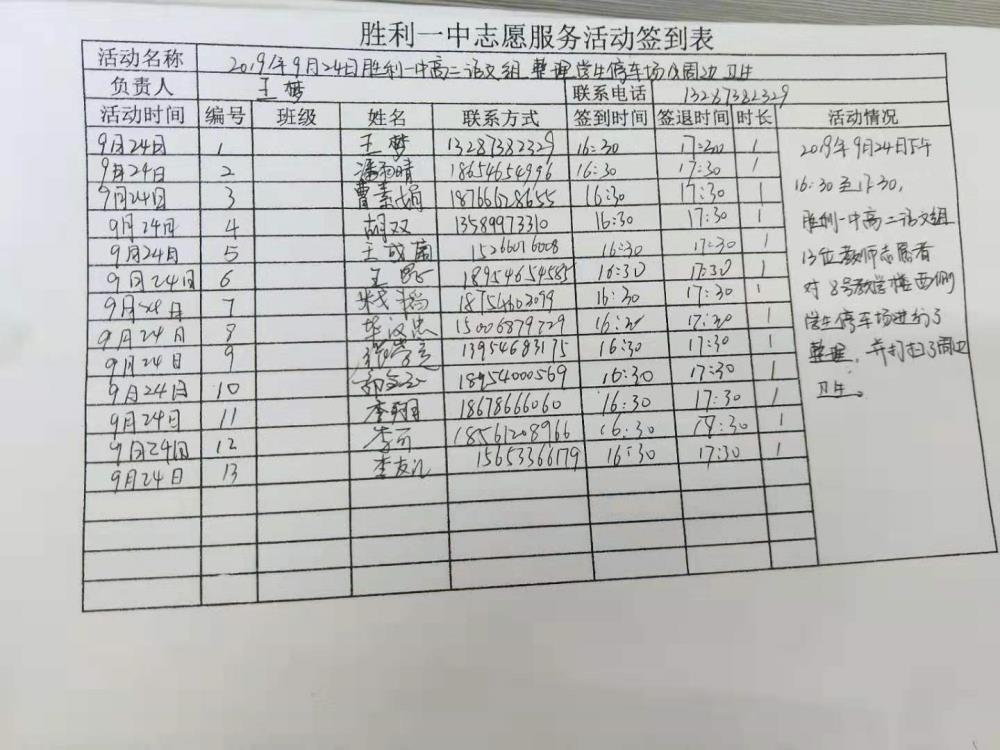 胜利一中志愿服务活动签到表
活动名称 2019年9月24日胜利一中高二语文组 整理学生停车场及周边卫生
负责人 王梦 联系电话 13287382329
活动时间 编号 班级 姓名 联系方式 签到时间 签退时间 时长 活动情况
9月24日 1 王梦 13287382329 16:30 17:30 1
9月24日 2 潘雨晴 18654654996 16:30 17:30 1
9月24日 3 曹素娟 18766728655 16:30 17:30 1
9月24日 4 胡双 13589973310 16:30 17:30 1
9月24日 5 15266076008 16:30 17:30 1
9月24日 6 王 18954654585 16:30 17:30 1
9月24日 7 18754602099 16:30 17:30 1
9月24日 8 15006879729 16:30 17:30 1
9月24日 9 13954683175 16:30 17:30 1
9月24日 10 18954000569 16:30 17:30 1
9月24日 11 李翔 18678666060 16:30 17:30 1
9月24日 12 18561208966 16:30 17:30 1
9月24日 13 李友礼 15653366179 16:30 17:30 1
2019年9月24日下午
16:30至17:30,
胜利一中高二语文组
13位教师志愿者
对8号教学楼西侧
学生停车场进行了
整理,并打扫了周边
卫生。